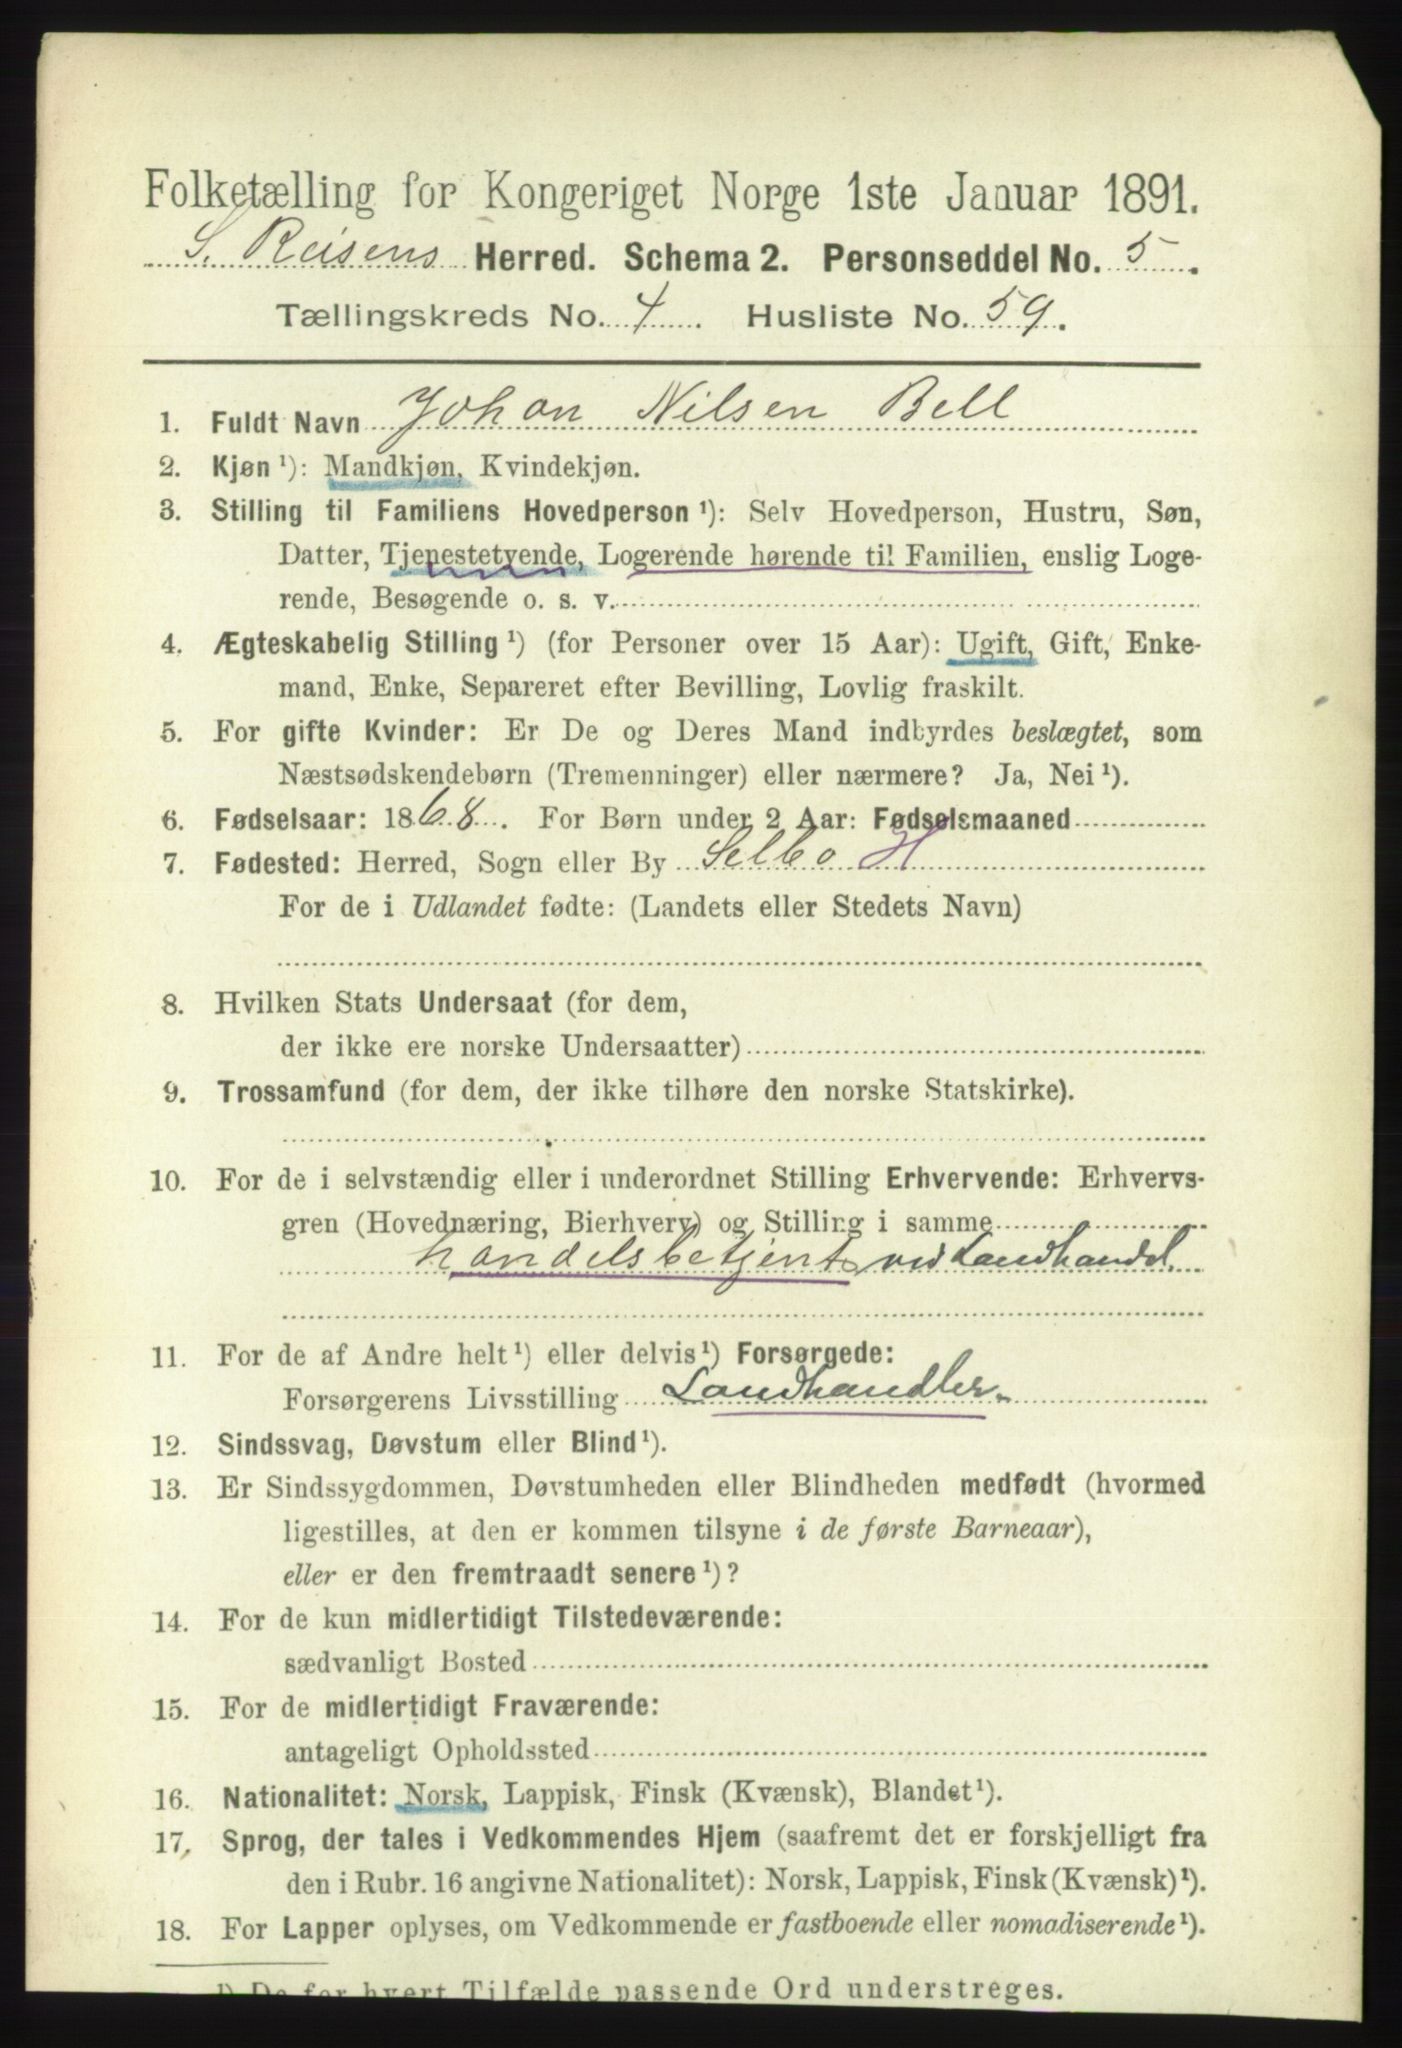 Folketælling for Kongeriget Norge 1ste Januar 1891.
S. Reisens Herred. Schema 2. Personseddel No. 5.
Tællingskreds No. 4. Husliste No. 59.
1. Fuldt Navn Johan Nilsen Bell
2. Kjøn ¹): Mandkjøn, Kvindekjøn.
3. Stilling til Familiens Hovedperson ¹): Selv Hovedperson, Hustru, Søn,
Datter, Tjenestetyende, Logerende hørende til Familien, enslig Loge-
rende, Besøgende o. s. v.
4. Ægteskabelig Stilling ¹) (for Personer over 15 Aar): Ugift, Gift, Enke-
mand, Enke, Separeret efter Bevilling, Lovlig fraskilt.
5. For gifte Kvinder: Er De og Deres Mand indbyrdes beslægtet, som
Næstsødskendebørn (Tremenninger) eller nærmere? Ja, Nei ¹).
6. Fødselsaar: 1868. For Børn under 2 Aar: Fødselsmaaned
7. Fødested: Herred, Sogn eller By Selbo H
For de i Udlandet fødte: (Landets eller Stedets Navn)
8. Hvilken Stats Undersaat (for dem,
der ikke ere norske Undersaatter)
9. Trossamfund (for dem, der ikke tilhøre den norske Statskirke).
10. For de i selvstændig eller i underordnet Stilling Erhvervende: Erhvervs-
gren (Hovednæring, Bierhverv) og Stilling i samme
handelsbetjent ved Landhandel
11. For de af Andre helt ¹) eller delvis ¹) Forsørgede:
Forsørgerens Livsstilling Landhandler
12. Sindssvag, Døvstum eller Blind ¹).
13. Er Sindssygdommen, Døvstumheden eller Blindheden medfødt (hvormed
ligestilles, at den er kommen tilsyne i de første Barneaar),
eller er den fremtraadt senere ¹)?
14. For de kun midlertidigt Tilstedeværende:
sædvanligt Bosted
15. For de midlertidigt Fraværende:
antageligt Opholdssted
16. Nationalitet: Norsk, Lappisk, Finsk (Kvænsk), Blandet ¹).
17. Sprog, der tales i Vedkommendes Hjem (saafremt det er forskjelligt fra
den i Rubr. 16 angivne Nationalitet): Norsk, Lappisk, Finsk (Kvænsk) ¹).
18. For Lapper oplyses, om Vedkommende er fastboende eller nomadiserende ¹).
¹) De for hvert Tilfælde passende Ord understreges.